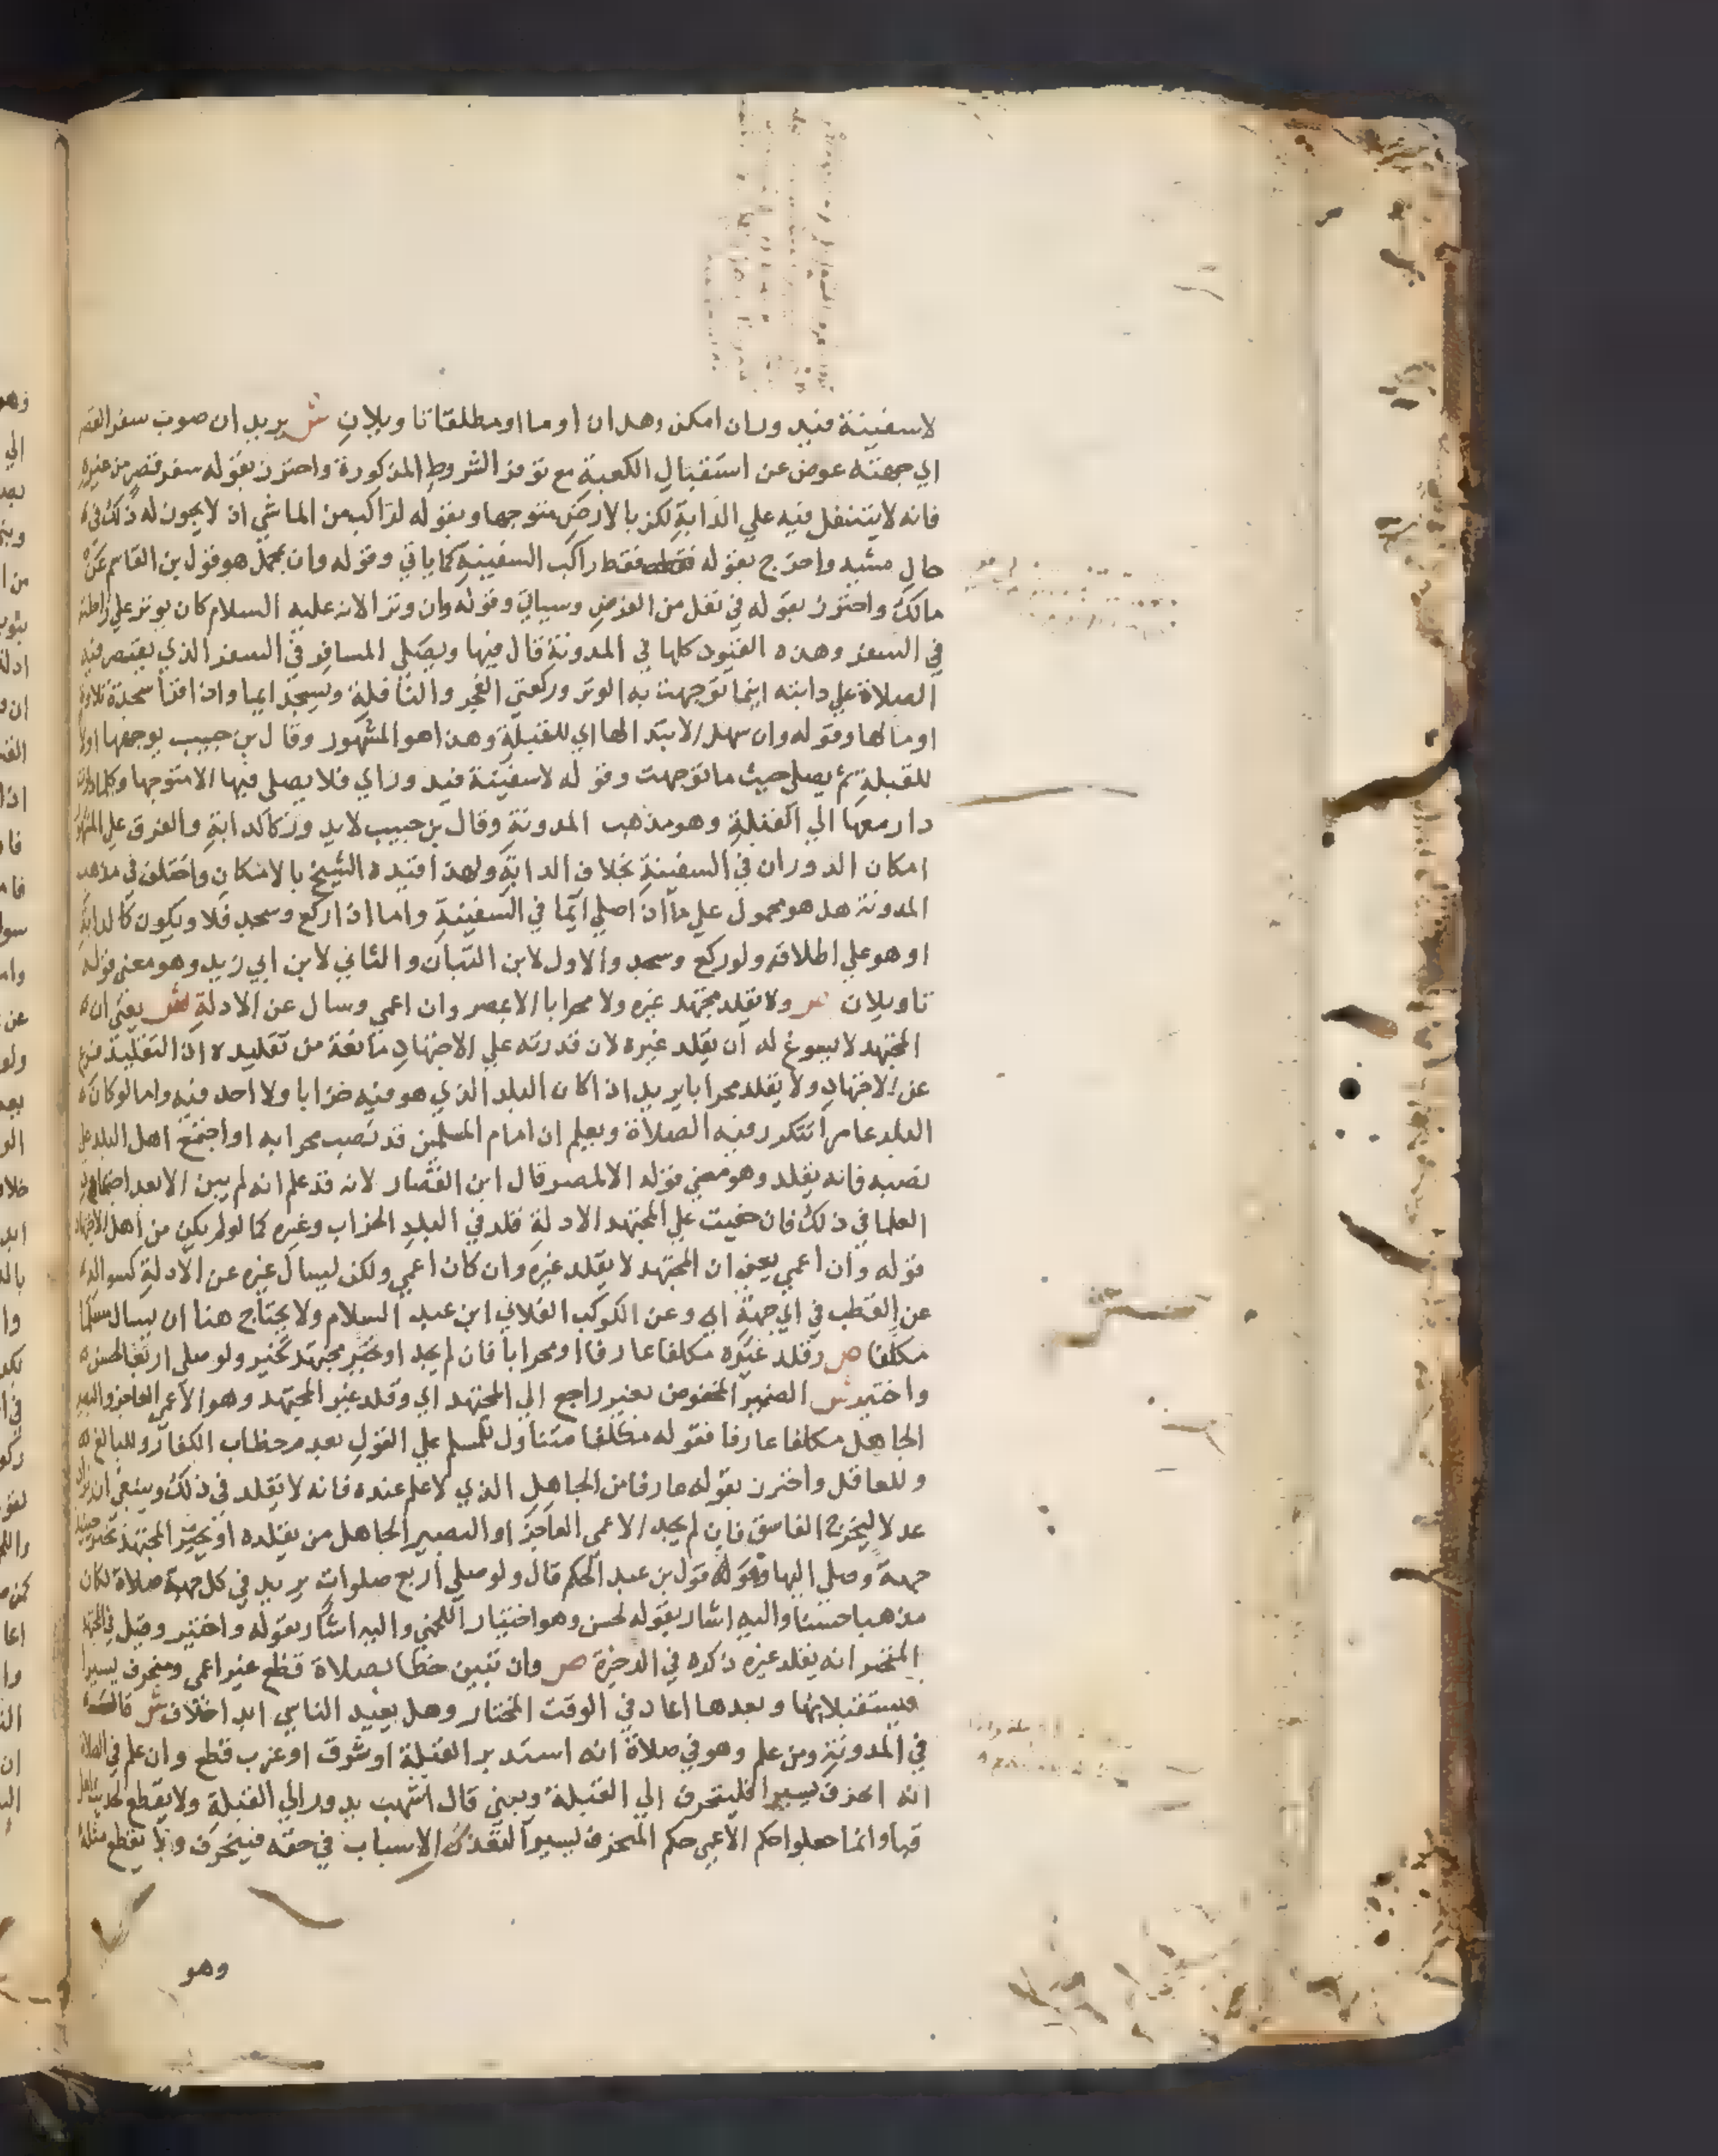 لا سفينة فيدور ان امكن وهل ان اوما او مطلقا تاويلان ش يريد ان صوب سفر القصر
الي جهته عوض عن استقبال الكعبة مع توفر الشروط المذكورة واحترز بقوله سفر قصر من غيره
فانه لا يتنفل فيه علي الدابة لكن بالارض متوجها وبقوله لراكب من الماشي اذ لا يجوز له ذلك في
حال مشيه واخرج بقوله فقط راكب السفينة كما ياتي وقوله وان بمحمل هو قول بن القاسم عن
مالك واحترز بقوله في نفل من الفرض وسياتي وقوله وان وتر الانه عليه السلام كان يوتر علي راحلته
في السفر وهذه القيود كلها في المدونة قال فيها ويصلي المسافر في السفر الذي يقصر فيه
الصلاة علي دابته اينما توجهت به الوتر وركعتي الفجر والنافلة ويسجد ايما واذا قرأ سجدة تلاوة
اوما لها وقوله وان سهل الابتدا لها اي للقبلة وهذا هو المشهور وقال بن حبيب يوجهها اولا
للقبلة ثم يصلي حيث ما توجهت وقوله لا سفينة فيدور اي فلا يصلي فيها الا متوجها وكلما دارت
دار معها الي القبلة وهو مذهب المدونة وقال بن حبيب لا يدور كالدابة والفرق علي المشهور
امكان الدوران في السفينة بخلاف الدابة ولهذا قيده الشيخ بالامكان واختلف في مذهب
المدونة هل هو محمول علي ما اذا صلي ايما في السفينة واما اذا ركع وسجد فلا ويكون كالدابة
او هو علي اطلاقه ولو ركع وسجد والاول لابن التبان والثاني لابن ابي زيد وهو معني قوله
تاويلان ص ولا يقلد مجتهد غيره ولا محرابا الا لمصر وان اعمي وسال عن الادلة ش يعني ان
المجتهد لا يسوغ له ان يقلد غيره لان قدرته علي الاجتهاد مانعة من تقليده اذ التقليد فرع
عن الاجتهاد ولا يقلد محرابا يريد اذا كان البلد الذي هو فيه خرابا ولا احد فيه واما لو كان
البلد عامرا تتكرر فيه الصلاة ويعلم ان امام المسلمين قد نصب محرابه او اجتمع اهل البلد علي
نصبه فانه يقلد وهو معني قوله الا لمصر قال ابن القصار لانه قد علم انه لم يبن الا بعد اجتماع
العلما في ذلك فان خفيت علي المجتهد الادلة قلد في البلد الخراب وغيره كما لو لم يكن من اهل الاجتهاد
قوله وان اعمي يعني ان المجتهد لا يقلد غيره وان كان اعمي ولكن ليسال غيره عن الادلة كسواله
عن القطب في اي جهة اي وعن الكوكب الفلاني ابن عبد السلام ولا يحتاج هنا ان يسال مسلما
مكلفا ص وقلد غيره مكلفا عارفا او محرابا فان لم يجد او تحير مجتهد تخير ولو صلي اربعا لحسن
واختير ش الضمير المخفوض بغير راجع الي المجتهد اي وقلد غير المجتهد وهو الاعمي العاجز والبصير
الجاهل مكلفا عارفا فقوله مكلفا متناول للمسلم علي القول بعدم خطاب الكفار وللبالغ
وللعاقل واحترز بقوله عارفا من الجاهل الذي لا علم عنده فانه لا يقلد في ذلك وينبغي ان يزاد
عدلا ليخرج الفاسق فان لم يجد الاعمي العاجز او البصير الجاهل من يقلده او تحير المجتهد تخير حينئذ
جهة وصلي اليها وهو قول بن عبد الحكم قال ولو صلي اربع صلوات يريد في كل جهة صلاة لكان
مذهبا حسنا واليه اشار بقوله لحسن وهو اختيار اللخمي واليه اشار بقوله واختير وقيل في المجتهد
المتحير انه يقلد غيره ذكره في الذخيرة ص وان تبين خطا بصلاة قطع غير اعمي ومنحرف يسيرا
فيستقبلانها وبعدها اعاد في الوقت المختار وهل يعيد الناسي ابدا خلاف ش قال
في المدونة ومن علم وهو في صلاة انه استدبر القبلة او شرق او غرب قطع وان علم في الصلاة
انه انحرف يسيرا فلينحرف الي القبلة ويبني قال اشهب يدور الي القبلة ولا يقطع
قبا وانما جعلوا حكم الاعمي حكم المنحرف يسيرا لتعذر الاسباب في حقه فينحرف ولا يقطع مثله
وهو